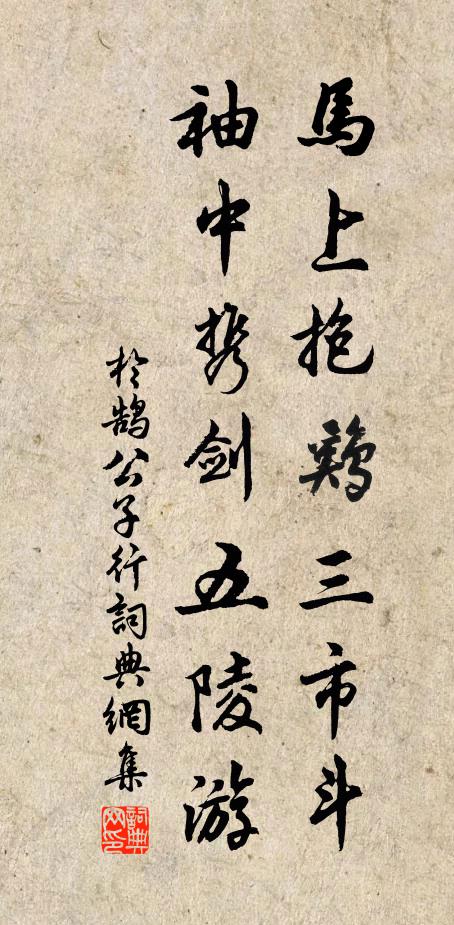 馬上抱鷄三市斗
袖中携劍五陵游
於鵠公子行詞典網集
詞典網印